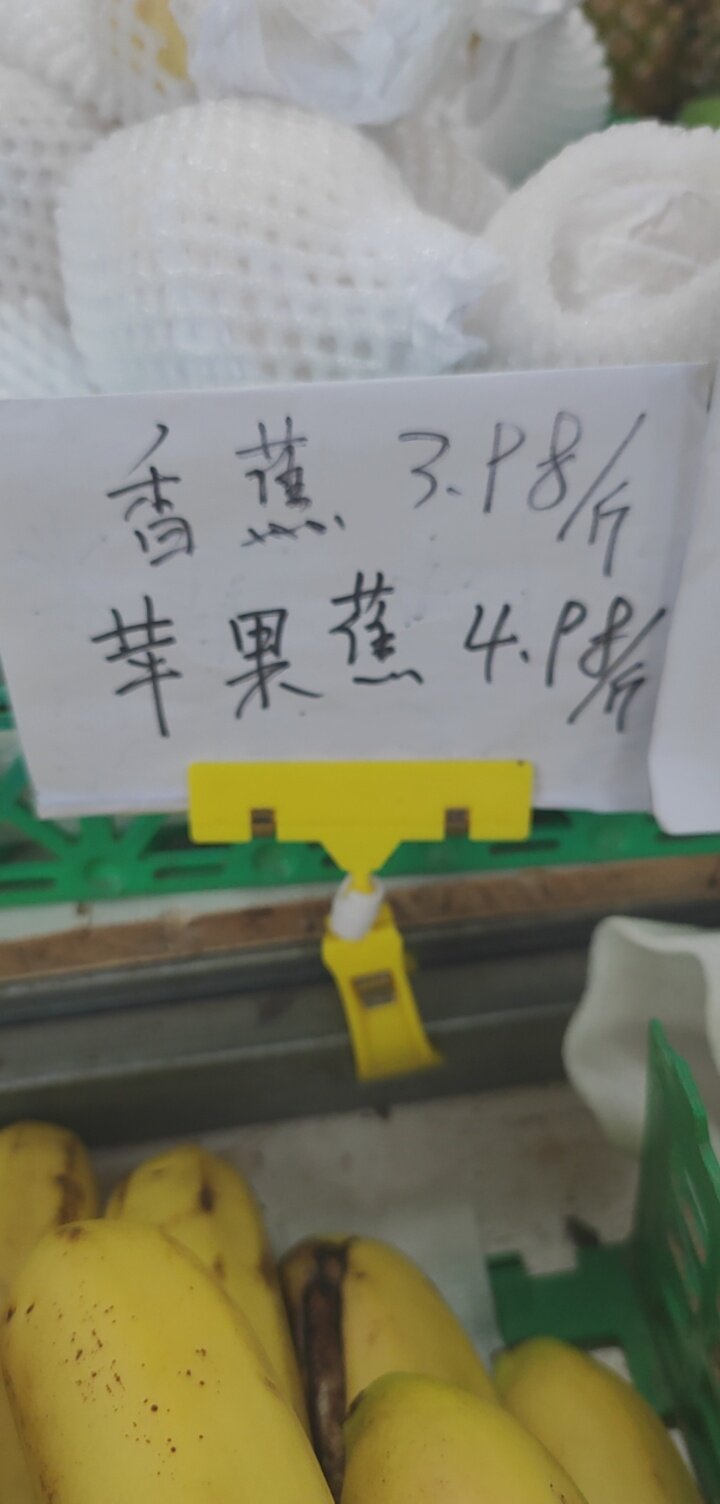 香蕉 3.98/斤
苹果蕉 4.98/斤